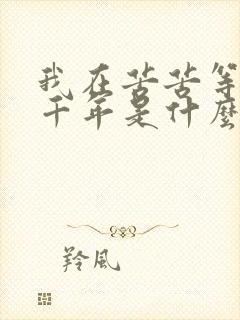 我在苦苦等
千年是什麼
羚風